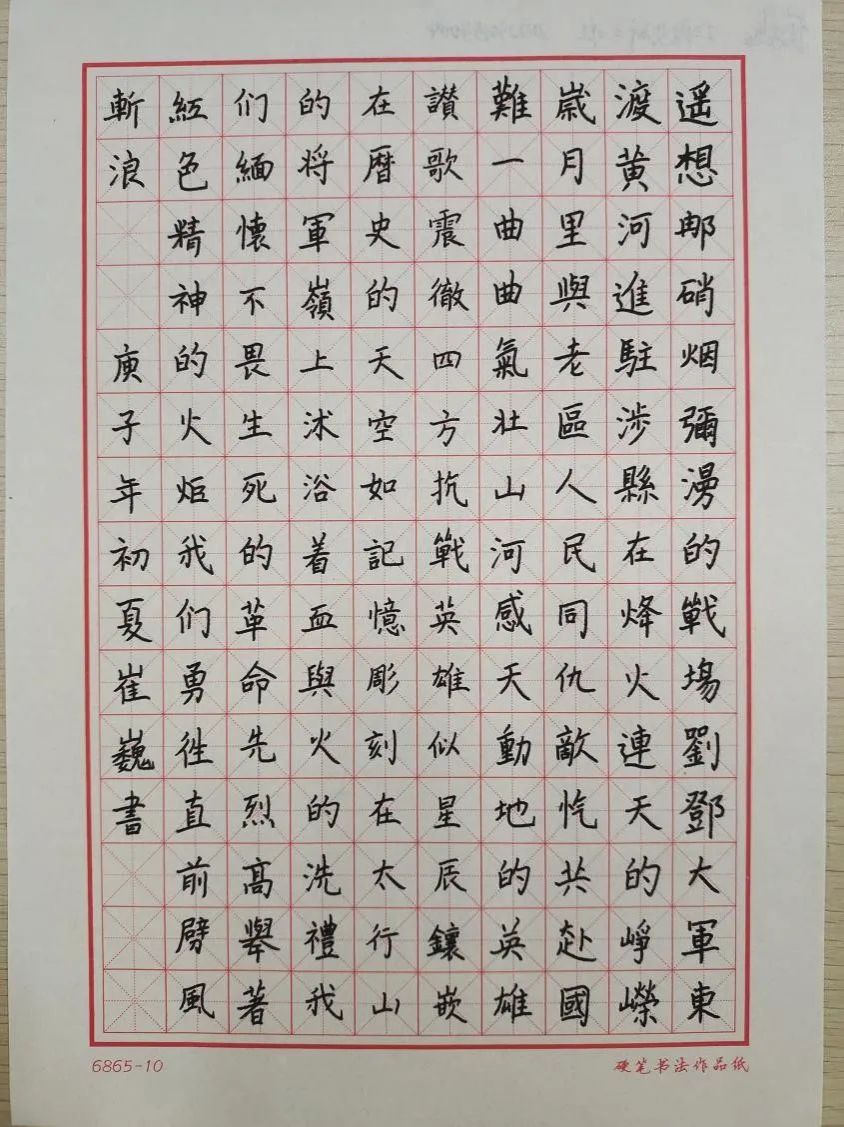 遥想那硝烟彌漫的戰場劉鄧大軍東
渡黄河進駐涉縣在烽火連天的崢嶸
歲月里與老區人民同仇敵忾共赴國
難一曲曲氣壯山河感天動地的英雄
讃歌震徹四方抗戰英雄似星辰鑲嵌
在曆史的天空如記憶彫刻在太行山
的将軍嶺上沐浴着血與火的洗禮我
们緬懷不畏生死的革命先烈高舉著
紅色精神的火炬我们勇往直前劈風
斬浪 庚子年初夏崔巍書
6865-10
硬笔书法作品纸